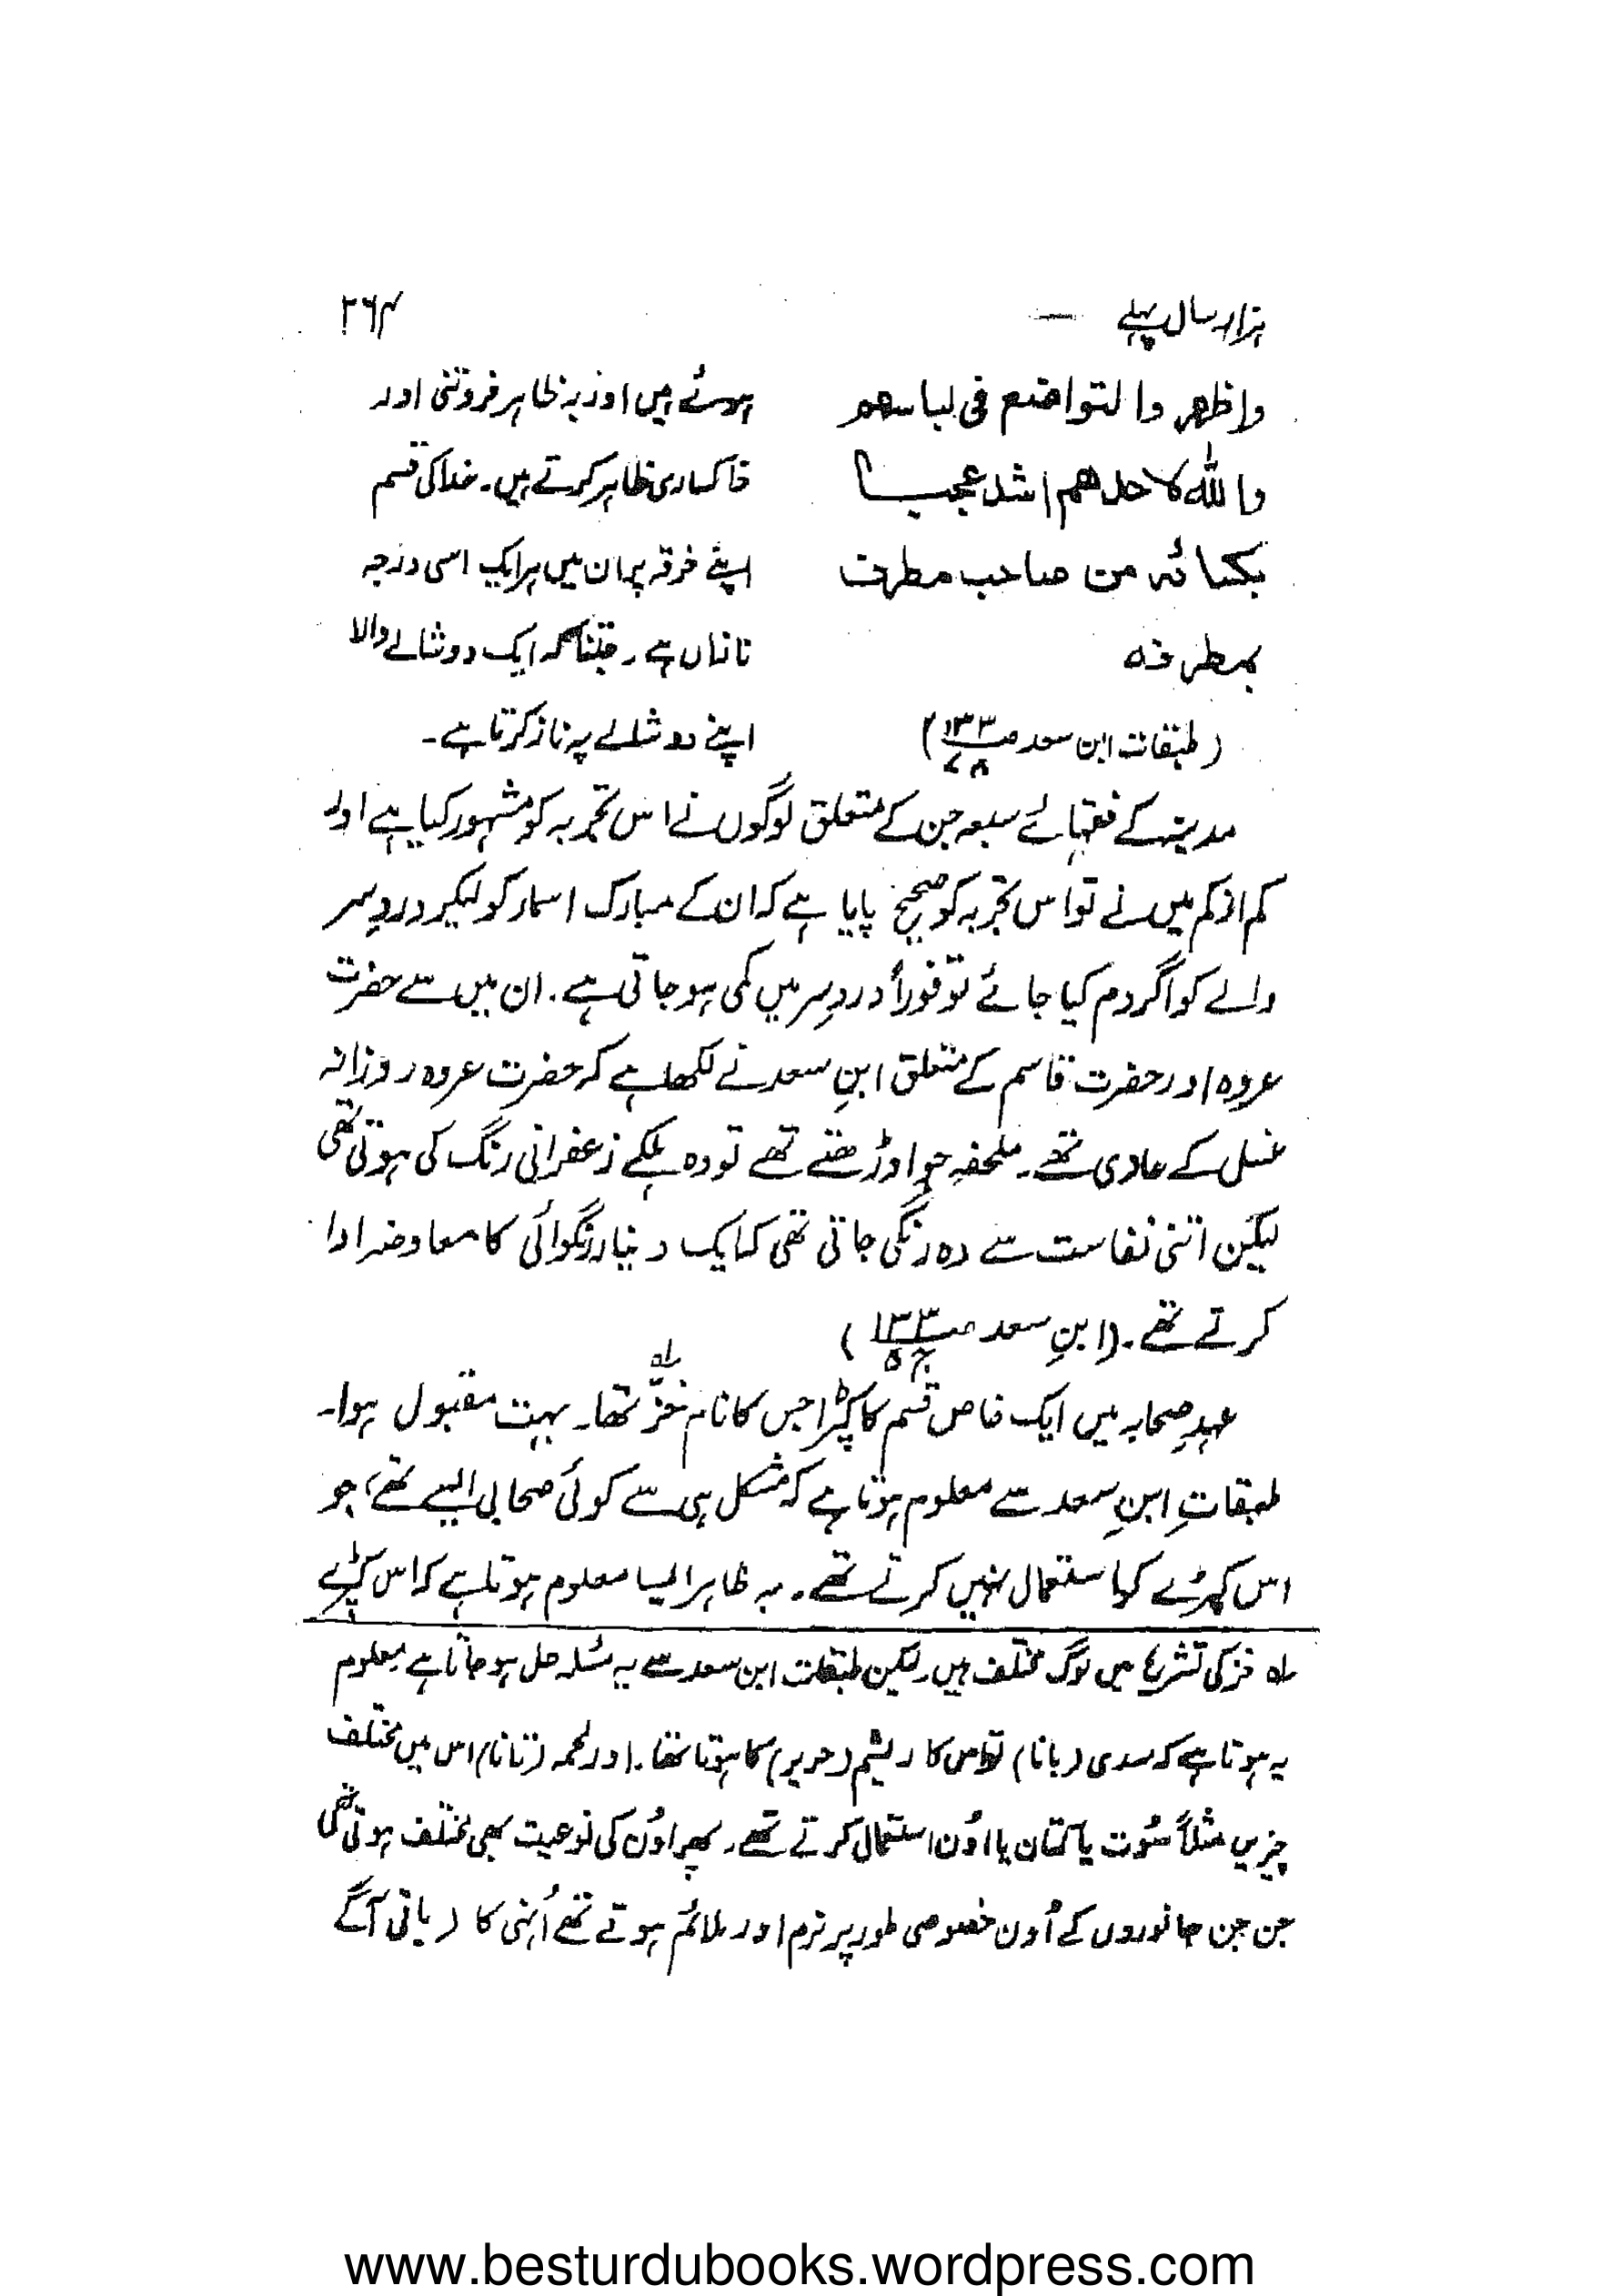 ہزار سال پہلے — ۲۶۴
واظھر وا التواضع فی لباسھم
واللہ لاحدھم اشد عجبا
بکسائہ من صاحب مطرف
بمطرفہ
(طبقات ابن سعد ص۱۳۳ ج۷)
ہوئے ہیں اور بہ ظاہر فروتنی اور
خاکساری ظاہر کرتے ہیں۔ خدا کی قسم
اپنے خرقہ پر ان میں ہر ایک اسی درجہ
نازاں ہے۔ جتنا کہ ایک دوشالے والا
اپنے دوشالے پہ ناز کرتا ہے۔
مدینہ کے فقہائے سبعہ جن کے متعلق لوگوں نے اس تجربہ کو مشہور کیا ہے اور
کم از کم میں نے تو اس تجربہ کو صحیح پایا ہے کہ ان کے مبارک اسمار کو لیکر دردِ سر
والے کو اگر دم کیا جائے تو فوراً دردِ سر میں کمی ہو جاتی ہے. ان میں سے حضرت
عروہ اور حضرت قاسم کے متعلق ابنِ سعد نے لکھا ہے کہ حضرت عروہ روزانہ
غسل کے عادی تھے۔ ملحفہ جو اوڑھتے تھے تو وہ ہلکے زعفرانی رنگ کی ہوتی تھی
لیکن اتنی نفاست سے وہ رنگی جاتی تھی کہ ایک دینار رنگوائی کا معاوضہ ادا
کرتے تھے۔ (ابنِ سعد ص۱۳۳ ج۵)
عہدِ صحابہ میں ایک خاص قسم کا کپڑا جس کا نام خَزّ لہ تھا۔ بہت مقبول ہوا۔
طبقاتِ ابنِ سعد سے معلوم ہوتا ہے کہ مشکل ہی سے کوئی صحابی ایسے تھے، جو
اس کپڑے کو استعمال نہیں کرتے تھے۔ بہ ظاہر ایسا معلوم ہوتا ہے کہ اس کپڑے
لہ خز کی تشریح میں لوگ مختلف ہیں۔ لیکن طبقات ابن سعد سے یہ مسئلہ حل ہو جاتا ہے معلوم
یہ ہوتا ہے کہ سدی (بانا) تو اس کا ریشم (حریر) کا ہوتا تھا۔ اور لحمہ (تانا) اس میں مختلف
چیزیں مثلاً سُوت یا کتان یا اوُن استعمال کرتے تھے۔ پھر اوُن کی نوعیت بھی مختلف ہوتی تھی
جن جن جانوروں کے اُون خصوصی طور پر نرم اور ملائم ہوتے تھے اُنہی کا (باقی آگے
www.besturdubooks.wordpress.com